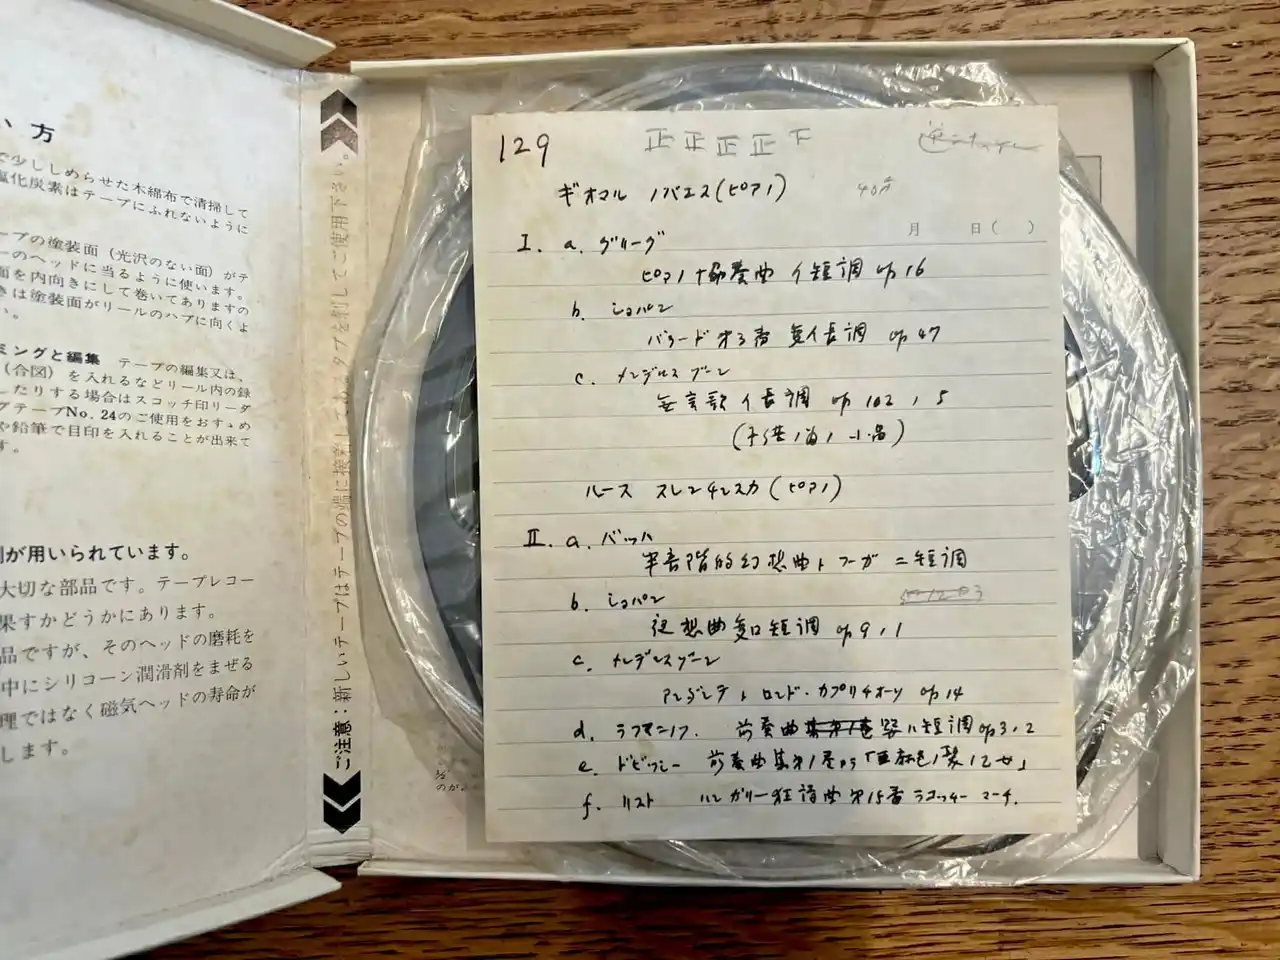 い方
で少ししめらせた木綿布で清掃して
塩化炭素はテープにふれないように
ープの塗装面（光沢のない面）がテ
ーのヘッドに当るように使います。
面を内向きにして巻いてありますの
きは塗装面がリールのハブに向くよ
い。
ミングと編集 テープの編集又は、
（合図）を入れるなどリール内の録
したりする場合はスコッチ印リーダ
グテープNo.24のご使用をおすゝめ
や鉛筆で目印を入れることが出来て
す。
剤が用いられています。
大切な部品です。テープレコー
果すかどうかにあります。
品ですが、そのヘッドの磨耗を
中にシリコーン潤滑剤をまぜる
理ではなく磁気ヘッドの寿命が
します。
ご注意：新しいテープはテープの端に接着してあるタブを剥してご使用下さい。
129 正正正正下
ギオマル ノバエス(ピアノ) 40分
月 日( )
I. a. グリーグ
ピアノ協奏曲 イ短調 op 16
b. ショパン
バラード オ3番 変イ長調 op 47
c. メンデルスゾーン
無言歌 イ長調 op 102, 5
(子供ノ為ノ小品)
ルース スレンチンスカ(ピアノ)
II. a. バッハ
半音階的幻想曲トフーガ ニ短調
b. ショパン
夜想曲変ロ短調 op 9, 1
c. メンデルスゾーン
アンダンテト ロンド・カプリチオーソ op 14
d. ラフマニノフ. 前奏曲 嬰ハ短調 op 3, 2
e. ドビッシー 前奏曲集第1巻から「亜麻色ノ髪ノ乙女」
f. リスト ハンガリー狂詩曲 第15番 ラコッツィー マーチ.